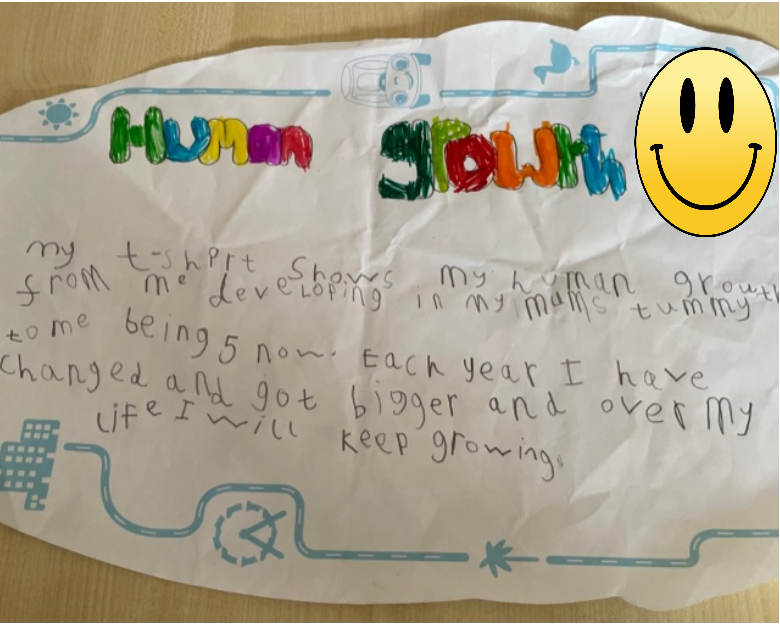 Human growth
my t-shirt shows my human growth
from me developing in my mums tummy
to me being 5 now. Each year I have
changed and got bigger and over my
life I will keep growing.